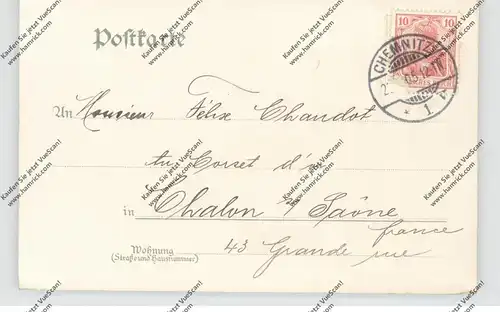 Postkarte
10 10
CHEMNITZ
1
An Monsieur Félix Chandot
au Corset d'or
in Chalon s/ Saône
france
Wohnung
(Straße und Hausnummer)
43 Grande rue
Kaufen Sie jetzt VueScan!
www.hamrick.com